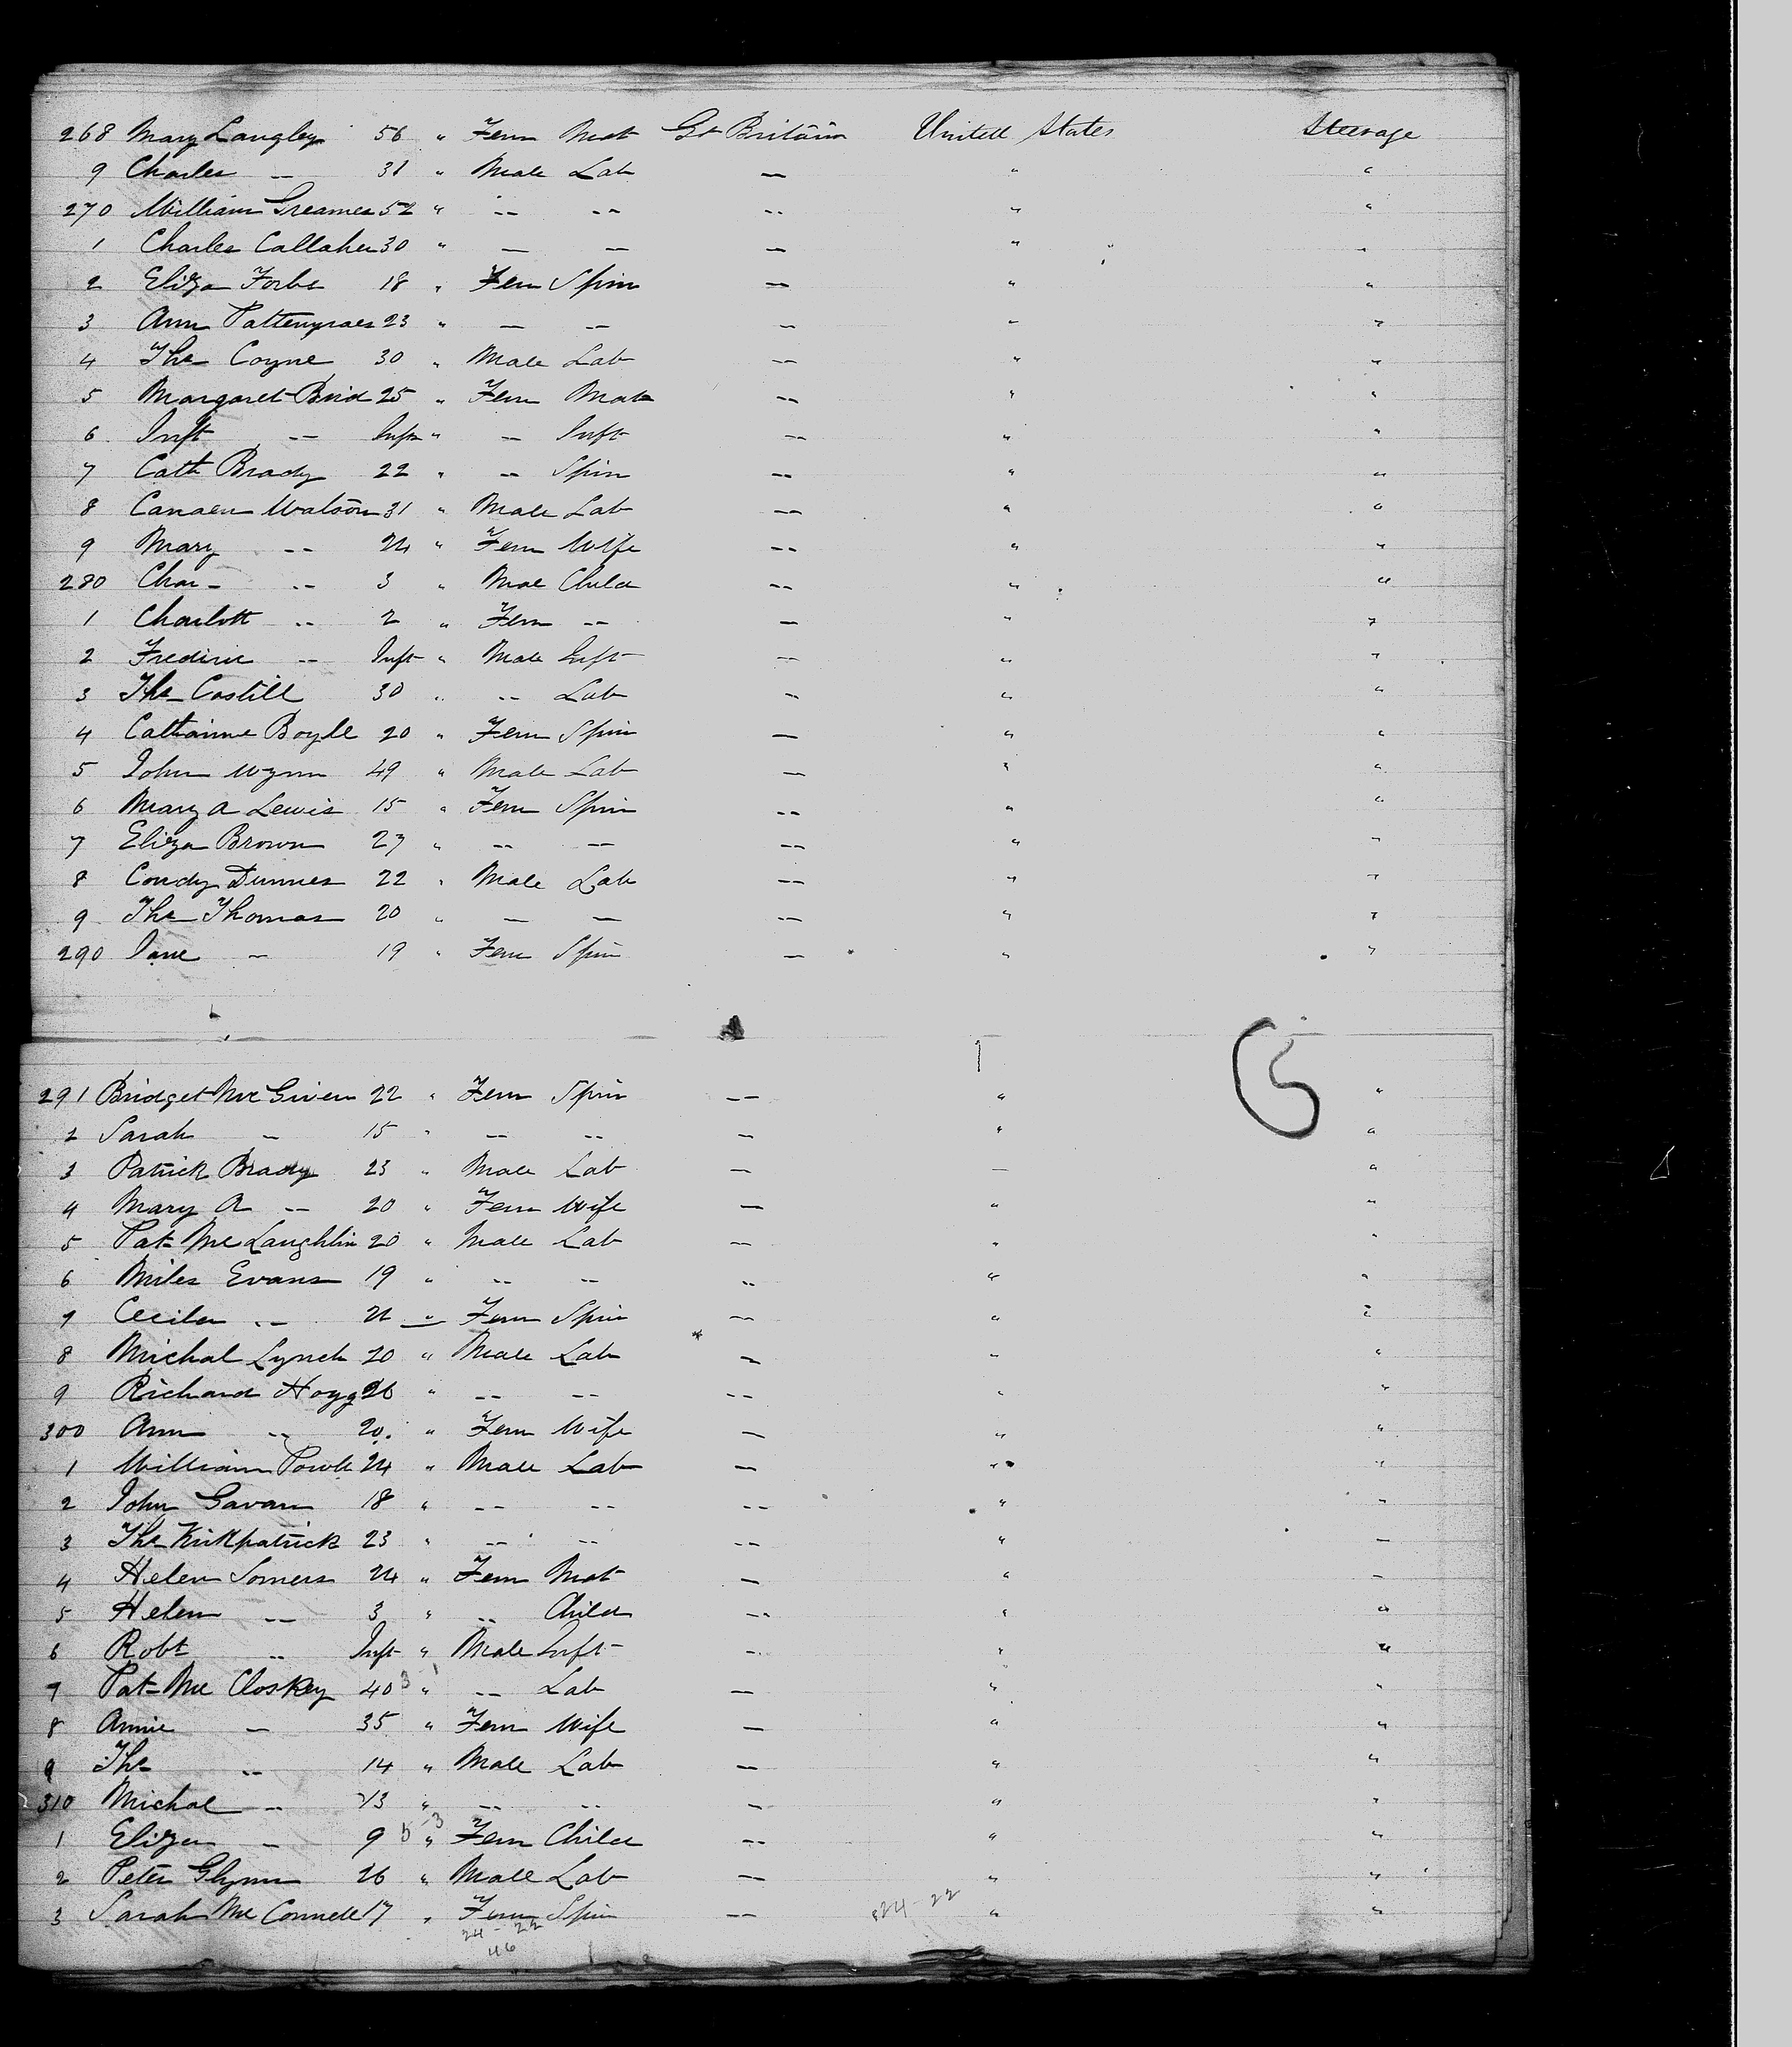 268 Mary Langley 56 " Fem Mat Gt Britain United States Steerage
9 Charles -- 31 " Male Lab -- " "
270 William Greames 52 " -- -- -- " "
1 Charles Callahen 30 " -- -- -- " "
2 Eliza Forbs 18 " Fem Spin -- " "
3 Ann 23 " -- -- -- " "
4 Tho Coyne 30 " Male Lab -- " "
5 Margaret Bird 25 " Fem Mat -- " "
6 Inft -- Inft " -- Inft -- " "
7 Cath Brady 22 " -- Spin -- " "
8 Watson 31 " Male Lab -- " "
9 Mary -- 24 " Fem Wife -- " "
280 Chas -- 3 " Male Child -- " "
1 Charlott -- 2 " Fem -- -- " "
2 Frederic -- Inft " Male Inft -- " "
3 Tho Costill 30 " -- Lab -- " "
4 Catharine Boyle 20 " Fem Spin -- " "
5 John Wynn 49 " Male Lab -- " "
6 Mary A Lewis 15 " Fem Spin -- " "
7 Eliza Brown 27 " -- -- -- " "
8 Condy Dunnes 22 " Male Lab -- " "
9 Tho Thomas 20 " -- -- -- " "
290 Jane -- 19 " Fem Spin -- " "
5
291 Bridget McGiven 22 " Fem Spin -- " "
2 Sarah -- 15 " -- -- -- " "
3 Patrick Brady 23 " Male Lab -- -- "
4 Mary A -- 20 " Fem Wife -- " "
5 Pat McLaughlin 20 " Male Lab -- " "
6 Miles Evans 19 " -- -- -- " "
7 Cecilea -- 21 " Fem Spin -- " "
8 Michal Lynch 20 " Male Lab -- " "
9 Richard Hogg 26 " -- -- -- " "
300 Ann -- 20 " Fem Wife -- " "
1 William Powll 24 " Male Lab -- " "
2 John Gavan 18 " -- -- -- " "
3 Tho Kirkpatrick 23 " -- -- -- " --
4 Helen Somers 24 " Fem Mat -- " --
5 Helen -- 3 " -- Child -- " "
6 Robt -- Inft " Male Inft -- " "
7 Pat McCloskey 40 " -- Lab -- " "
8 Annie -- 35 " Fem Wife -- " "
9 Tho -- 14 " Male Lab -- " "
310 Michal -- 13 " -- -- -- " "
1 Eliza -- 9 " Fem Child -- " "
2 Peter Glynn 26 " Male Lab -- " "
3 Sarah McConnell 17 " Fem Spin -- " "
24-22 24-22
46